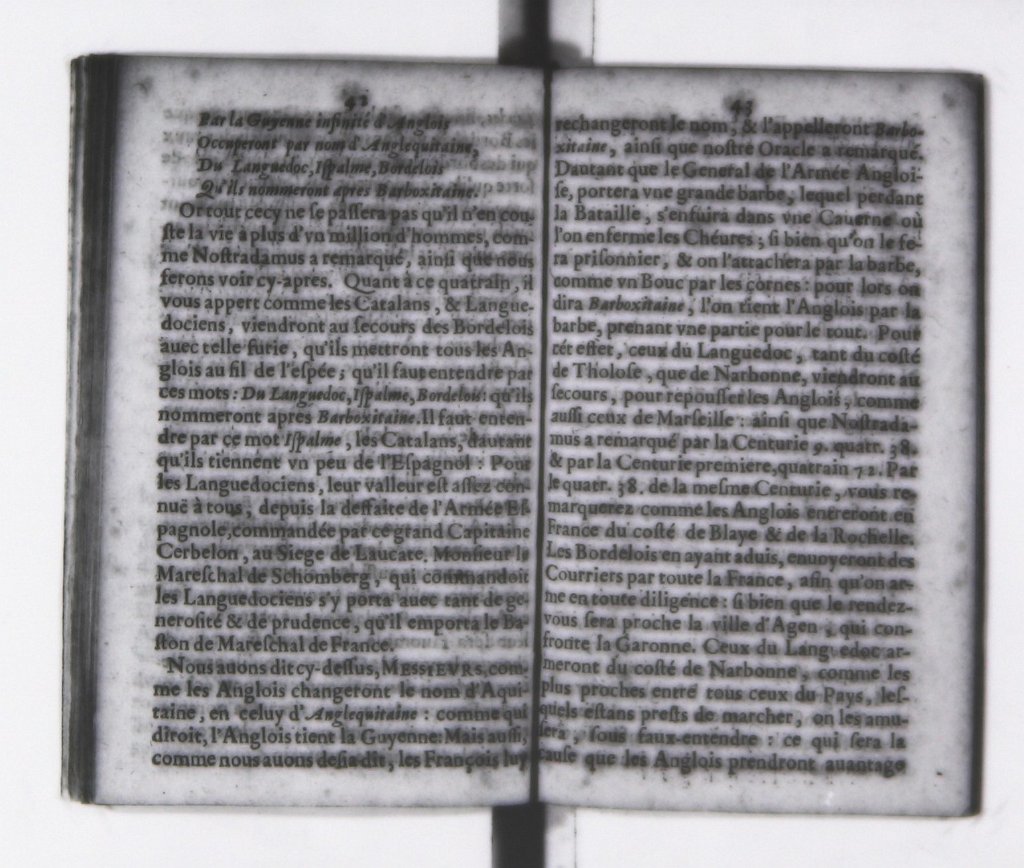 42
Par la Guyenne infinité d'Anglois
Occuperont par nom d'Anglequitaine,
Du Languedoc, Iſpalme, Bordelois
Qu'ils nommeront apres Barboxitaine.
Or tout cecy ne ſe paſſera pas qu'il n'en cou-
ſte la vie à plus d'vn million d'hommes, com-
me Noſtradamus a remarqué, ainſi que nous
ferons voir cy-apres. Quant à ce quatrain, il
vous appert comme les Catalans, & Langue-
dociens, viendront au ſecours des Bordelois
auec telle furie, qu'ils mettront tous les An-
glois au fil de l'eſpée; qu'il faut entendre par
ces mots: Du Languedoc, Iſpalme, Bordelois: qu'ils
nommeront apres Barboxitaine. Il faut enten-
dre par ce mot Iſpalme, les Catalans, dautant
qu'ils tiennent vn peu de l'Eſpagnol: Pour
les Languedociens, leur valleur eſt aſſez con-
nuë à tous, depuis la deffaite de l'Armée Eſ-
pagnole, commandée par ce grand Capitaine
Cerbelon, au Siege de Laucate. Monſieur le
Mareſchal de Schomberg, qui commandoit
les Languedociens s'y porta auec tant de ge-
neroſité & de prudence, qu'il emporta le Ba-
ſton de Mareſchal de France.
Nous auons dit cy-deſſus, MESSIEVRS, com-
me les Anglois changeront le nom d'Aqui-
taine, en celuy d'Anglequitaine: comme qui
diroit, l'Anglois tient la Guyenne: Mais auſſi,
comme nous auons deſia dit, les François luy
43
rechangeront le nom, & l'appelleront Barbo-
xitaine, ainſi que noſtre Oracle a remarqué.
Dautant que le General de l'Armée Angloi-
ſe, portera vne grande barbe, lequel perdant
la Bataille, s'enfuira dans vne Cauerne où
l'on enferme les Chéures; ſi bien qu'on le fe-
ra priſonnier, & on l'attachera par la barbe,
comme vn Bouc par les cornes: pour lors on
dira Barboxitaine, l'on tient l'Anglois par la
barbe, prenant vne partie pour le tout. Pour
cét effet, ceux du Languedoc, tant du coſté
de Tholoſe, que de Narbonne, viendront au
ſecours, pour repouſſer les Anglois, comme
auſſi ceux de Marſeille: ainſi que Noſtrada-
mus a remarqué par la Centurie 9. quatr. 38.
& par la Centurie premiere, quatrain 72. Par
le quatr. 38. de la meſme Centurie, vous re-
marquerez comme les Anglois entreront en
France du coſté de Blaye & de la Rochelle.
Les Bordelois en ayant aduis, enuoyeront des
Courriers par toute la France, afin qu'on ar-
me en toute diligence: ſi bien que le rendez-
vous ſera proche la ville d'Agen, qui con-
fronte la Garonne. Ceux du Languedoc ar-
meront du coſté de Narbonne, comme les
plus proches entre tous ceux du Pays, leſ-
quels eſtans preſts de marcher, on les amu-
ſera, ſous faux-entendre: ce qui ſera la
cauſe que les Anglois prendront auantage